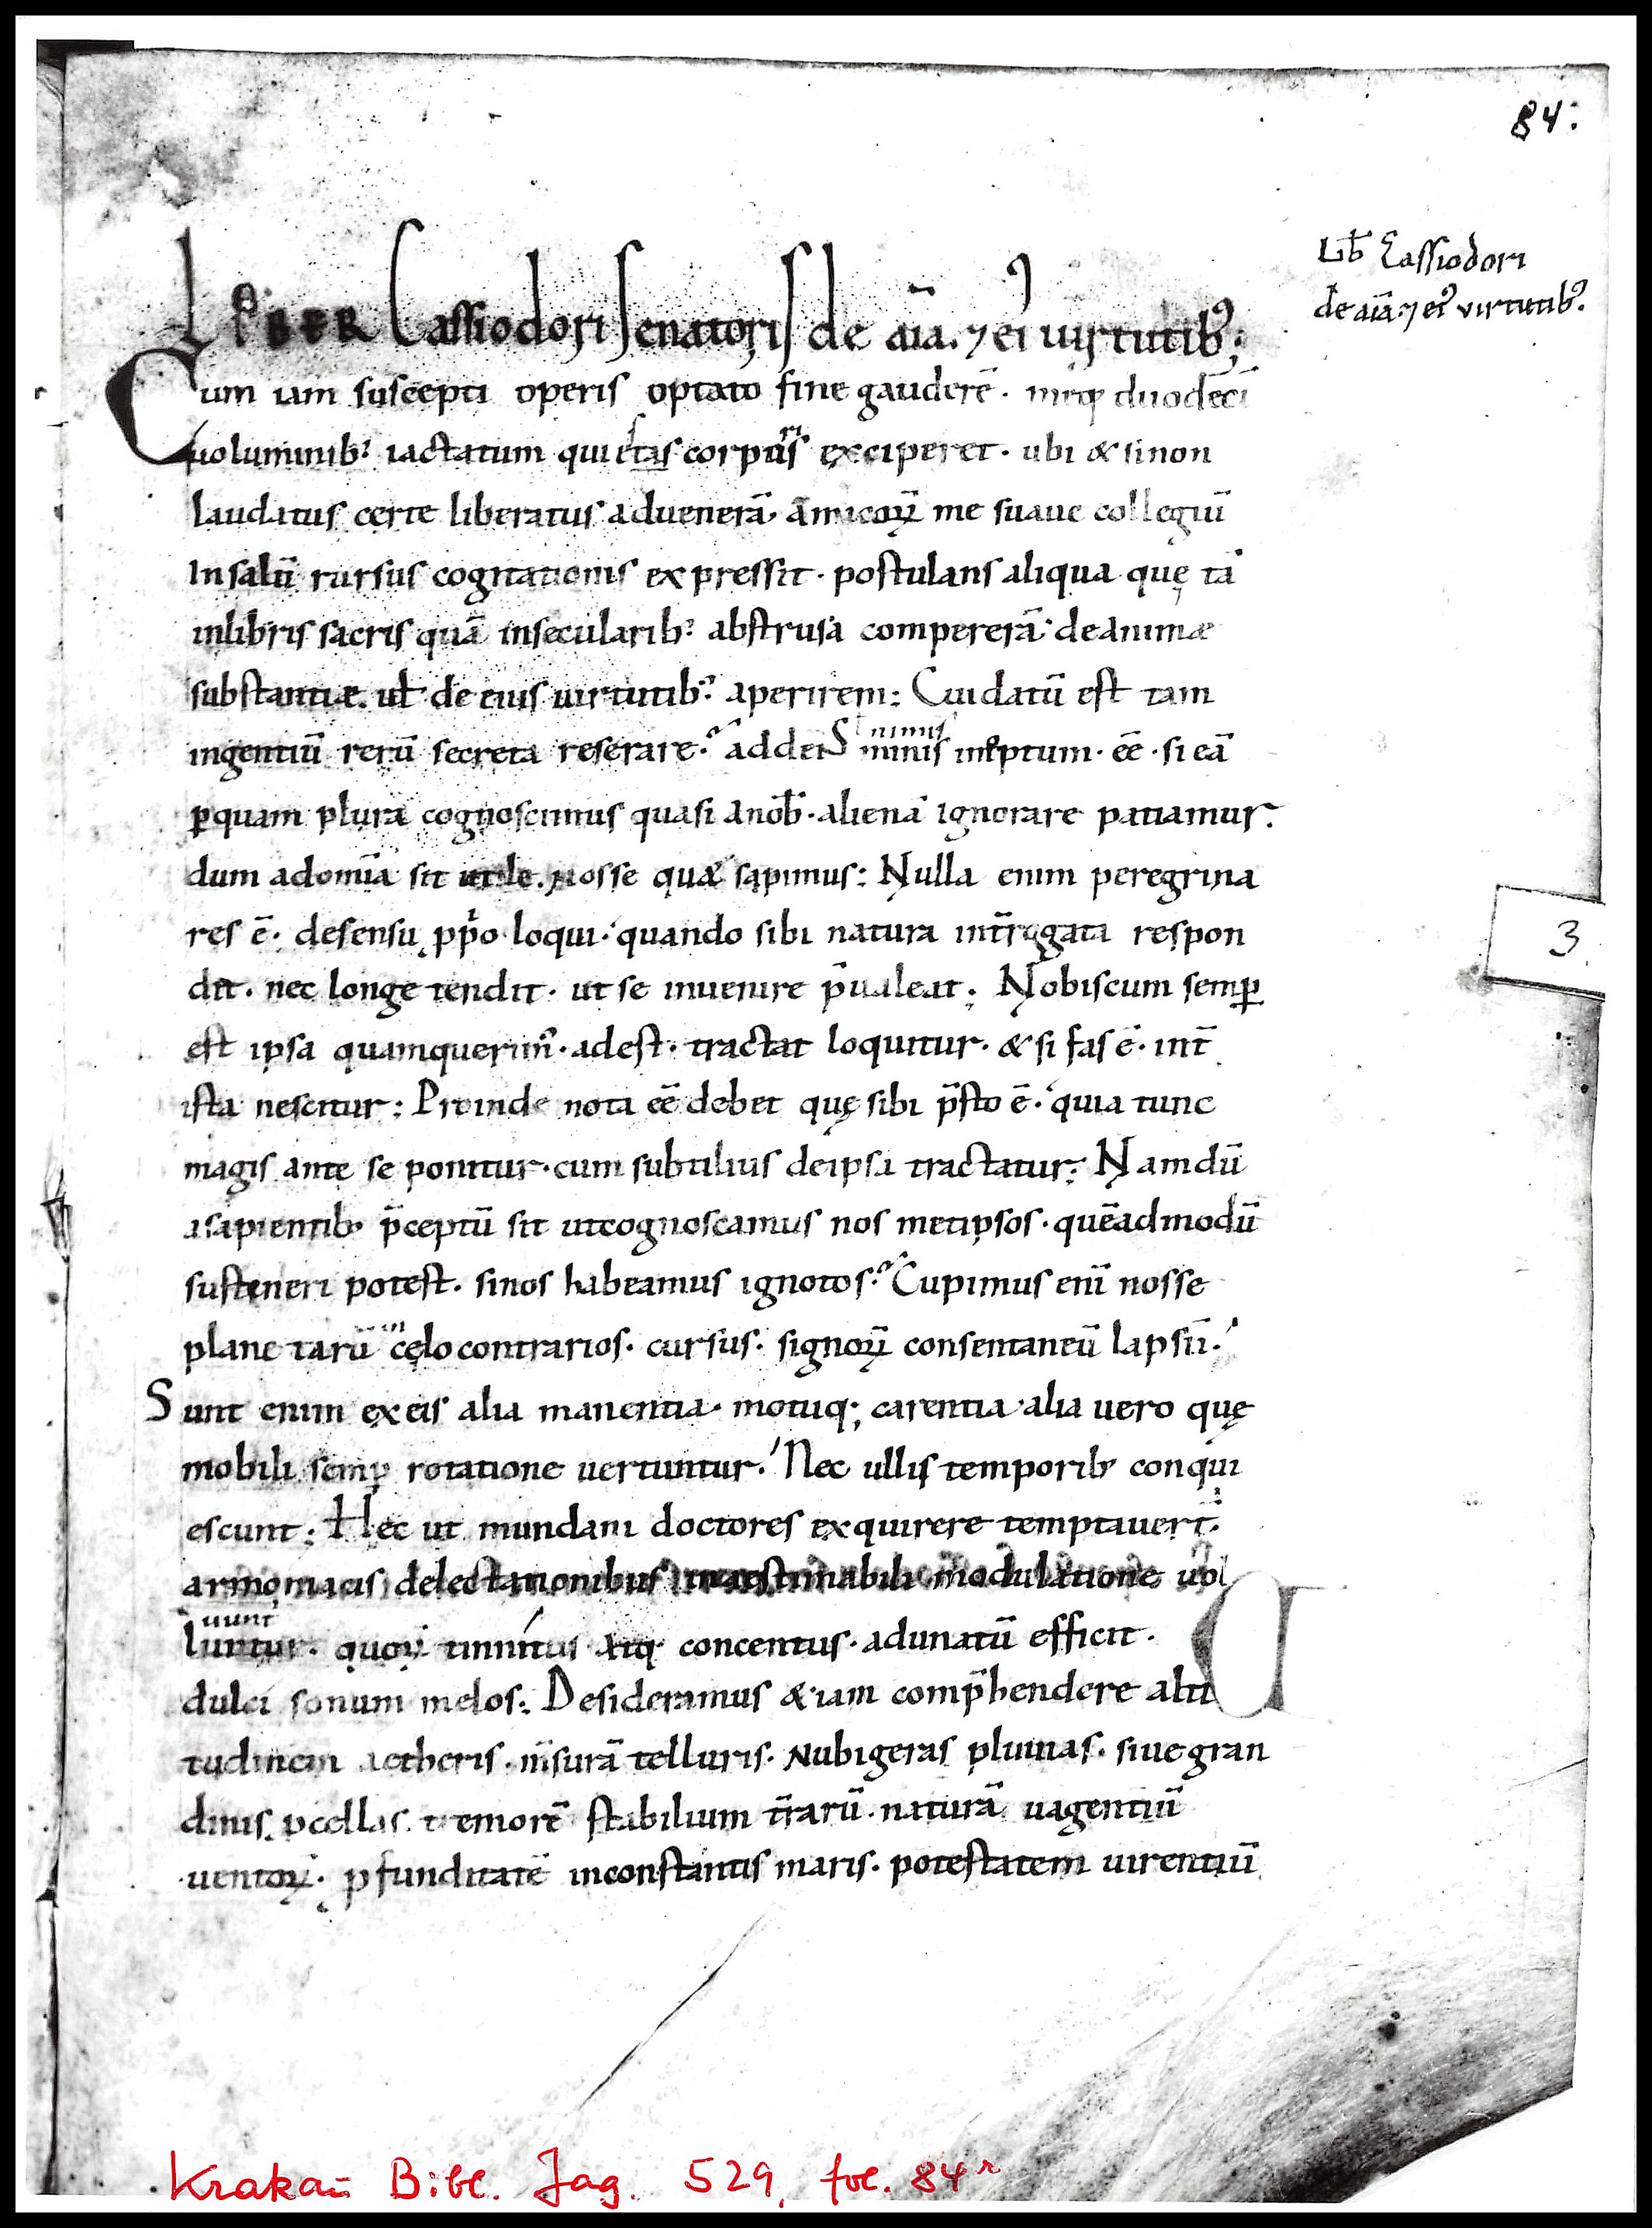 84:
Lib̄ Cassiodori
de aīa. ⁊ ei⁹ virtutib⁹.
LIBER Cassiodori senatoris de aīa. ⁊ ei⁹ uirtutib⁹;
Cum iam suscepti operis optato fine gauderē. meq; duodecī
uoluminib; iactatum quietas corporis exciperet. ubi & sinon
laudatus certe liberatus aduenerā. amicoꝝ me suaue collegiū
In salū rursus cogitationis expressit. postulans aliqua quę tā
inlibris sacris quā insecularib; abstrusa compererā. deanimæ
substantiæ. ul̄ de eius uirtutib;. aperirem: Cui datū est tam
ingentiū rerū secreta reserare. addens nimis ineptum. eē. si eā
ꝑquam plura cognoscimus quasi anob̄. aliena ignorare patiamur.
dum adomīa sit utile. nosse qua sapimus: Nulla enim peregrina
res ē. desensu ꝓp̄o loqui. quando sibi natura int̄rogata respon
dit. nec longe tendit. ut se inuenire p̄ualeat. Nobiscum semꝑ
est ipsa quamquerim⁹. adest. tractat loquitur. & si fas ē. int̄
ista nescitur: Proinde nota eē debet quę sibi p̄sto ē. quia tunc
magis ante se ponitur. cum subtilius deipsa tractatur: Nam dū
asapientib; p̄ceptū sit utcognoscamus nos metipsos. quēadmodū
susteneri potest. sinos habeamus ignotos. Cupimus enī nosse
plane tarū in cęlo contrarios. cursus. signoꝝ consentaneū lapsū.
Sunt enim ex eis alia manentia. motuq; carentia. alia uero quę
mobili semꝑ rotatione uertuntur. Nec ullis temporib; conqui
escunt: Hec ut mundani doctores exquirere temptauer̄t.
armoniacis delectationibus inaestimabili modulatione uol
uunt
luntur. quoꝝ tinnitus atq; concentus. adunatū efficit.
dulci sonum melos: Desideramus &iam comp̄hendere alti
tudinem aetheris. m̄surā telluris. Nubigeras pluuias. siue gran
dinis ꝓcellas. tremorē stabilium t̄rarū. naturā uagentiū
uentoꝝ. ꝓfunditatē inconstantis maris. potestatem uirentiū
3
Krakau Bibl. Jag. 529, fol. 84ʳ